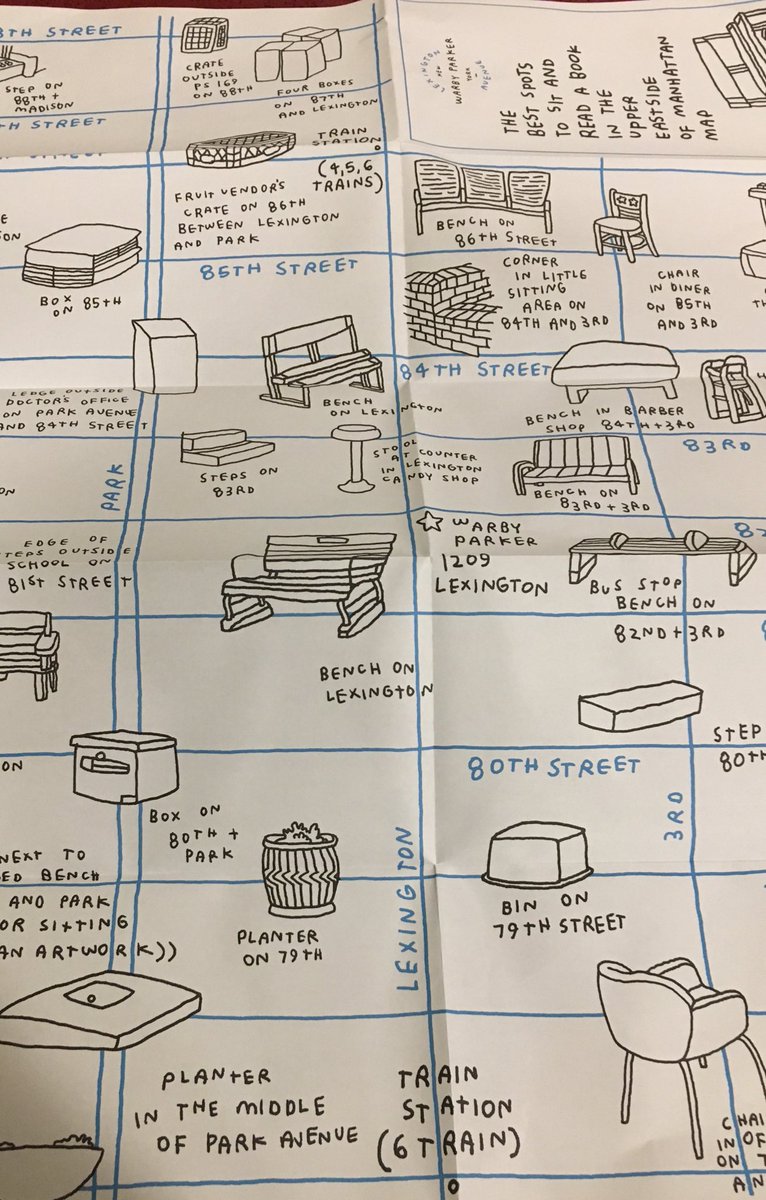 8TH STREET
STEP ON
88TH +
MADISON
CRATE
OUTSIDE
PS 169
ON 88TH
FOUR BOXES
ON 87TH
AND LEXINGTON
LEXINGTON
NEW
WARBY PARKER
YORK
AVENUE
THE
BEST SPOTS
TO SIT AND
READ A BOOK
IN THE
UPPER
EASTSIDE
OF MANHATTAN
MAP
TH STREET
TRAIN
STATION
(4,5,6
TRAINS)
FRUIT VENDOR'S
CRATE ON 86TH
BETWEEN LEXINGTON
AND PARK
BENCH ON
86TH STREET
BOX
ON 85TH
85TH STREET
CORNER
IN LITTLE
SITTING
AREA ON
84TH AND 3RD
CHAIR
IN DINER
ON 85TH
AND 3RD
TH
LEDGE OUTSIDE
DOCTOR'S OFFICE
ON PARK AVENUE
AND 84TH STREET
BENCH
ON LEXINGTON
84TH STREET
BENCH IN BARBER
SHOP 84TH + 3RD
83RD
PARK
STEPS ON
83RD
STOOL
AT COUNTER
IN LEXINGTON
CANDY SHOP
BENCH ON
83RD + 3RD
ON
EDGE OF
STEPS OUTSIDE
SCHOOL ON
81ST STREET
WARBY
PARKER
1209
LEXINGTON
82
BUS STOP
BENCH ON
82ND + 3RD
BENCH ON
LEXINGTON
STEP
80TH
ON
BOX ON
80TH +
PARK
80TH STREET
3RD
NEXT TO
ED BENCH
AND PARK
OR SITTING
AN ARTWORK))
PLANTER
ON 79TH
LEXINGTON
BIN ON
79TH STREET
PLANTER
IN THE MIDDLE
OF PARK AVENUE
TRAIN
STATION
(6 TRAIN)
CHAI
IN OF
ON T
AN